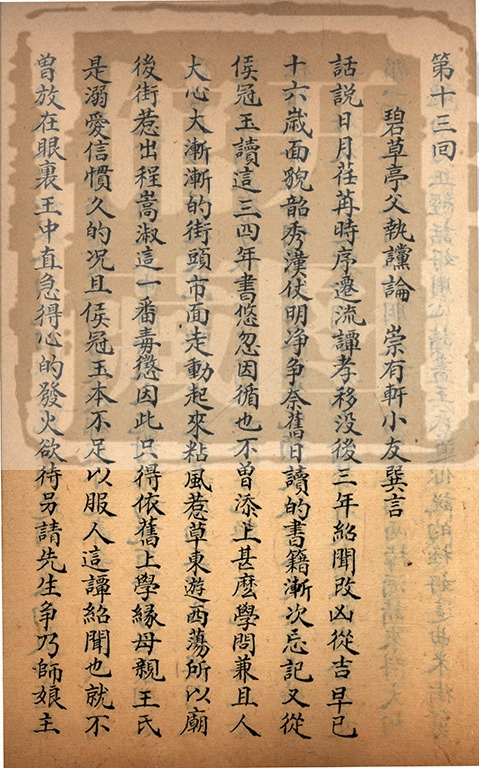 第十三回
碧草亭父執讜論 崇有軒小友巽言
話説日月荏苒時序遷流譚孝移没後三年紹聞改凶從吉早已
十六歲面貌韶秀漢仗明净争奈舊日讀的書籍漸次忘記又從
侯冠玉讀這三四年書悠忽因循也不曾添上甚麽學問兼且人
大心大漸漸的街頭市面走動起來粘風惹草東遊西蕩所以廟
後街惹出程嵩淑這一番毒懲因此只得依舊上學縁母親王氏
是溺愛信慣久的况且侯冠玉本不足以服人這譚紹聞也就不
曾放在眼裏王中直急得心的發火欲待另請先生争乃師娘主